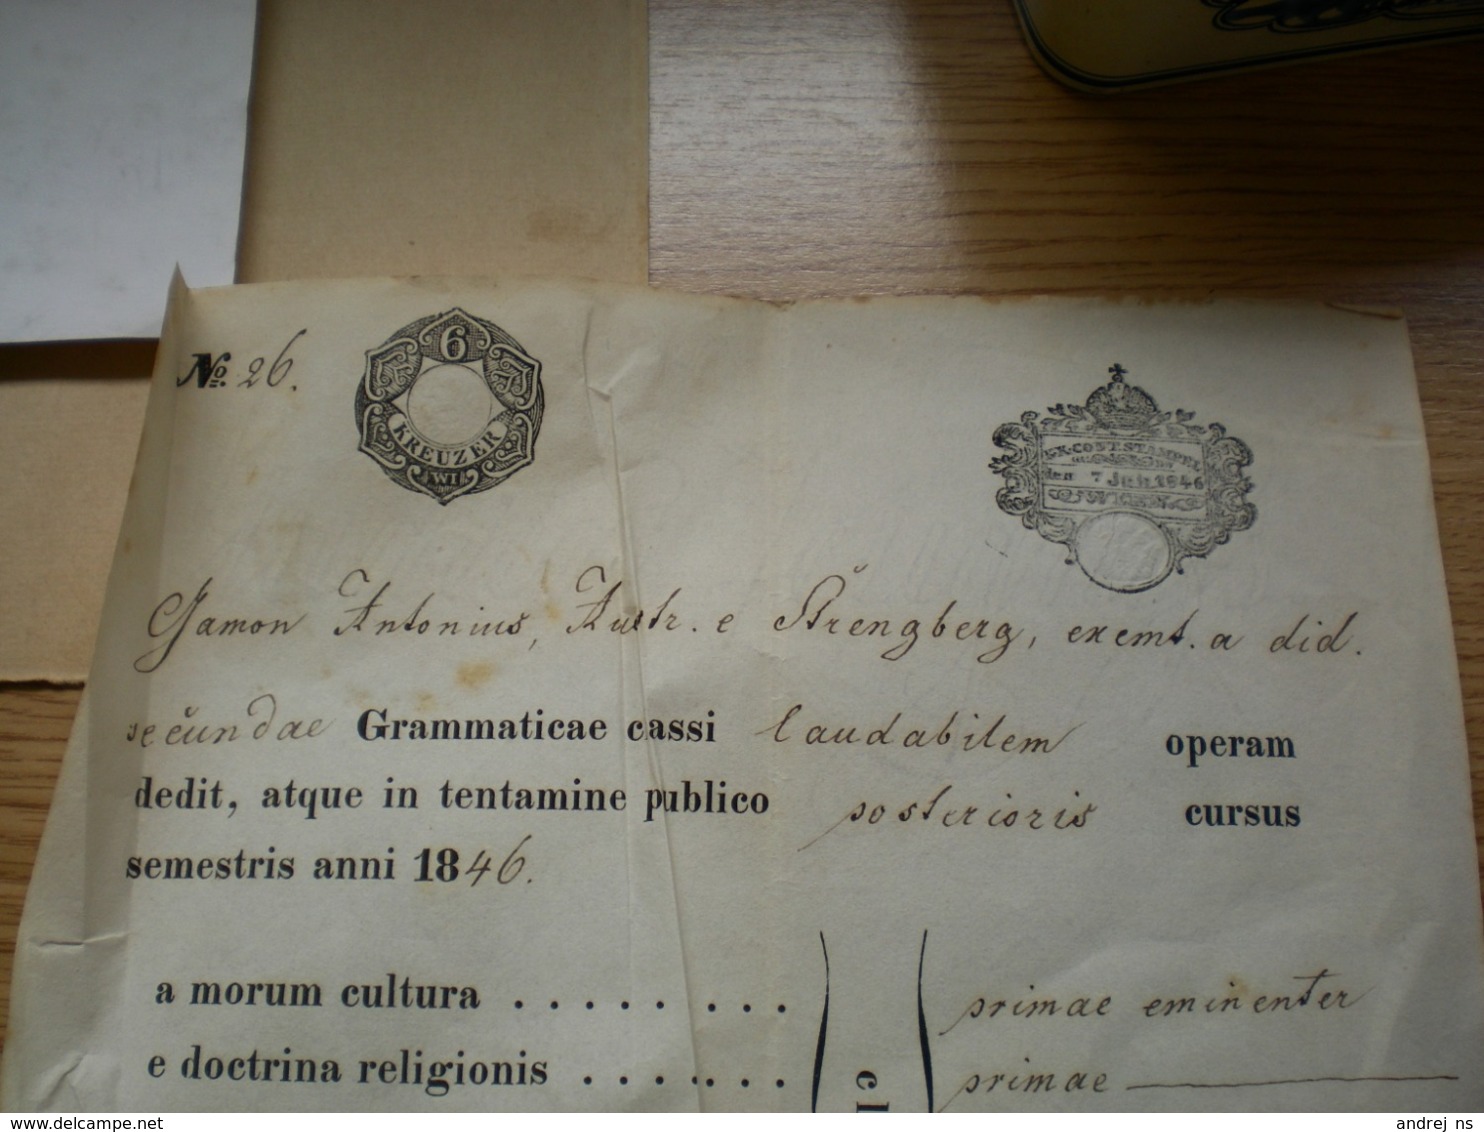 No. 26.
6
KREUZER
WI
K.K.COST.STAMPEL
den 7 Juli 1846
WIEN
Gamon Antonius, Austr. e Strengberg, exemt. a did.
secundae Grammaticae cassi laudabilem operam
dedit, atque in tentamine publico posterioris cursus
semestris anni 1846.
a morum cultura . . . . . . . . primae eminenter
e doctrina religionis . . . . . . . primae
cl
andrej_ns